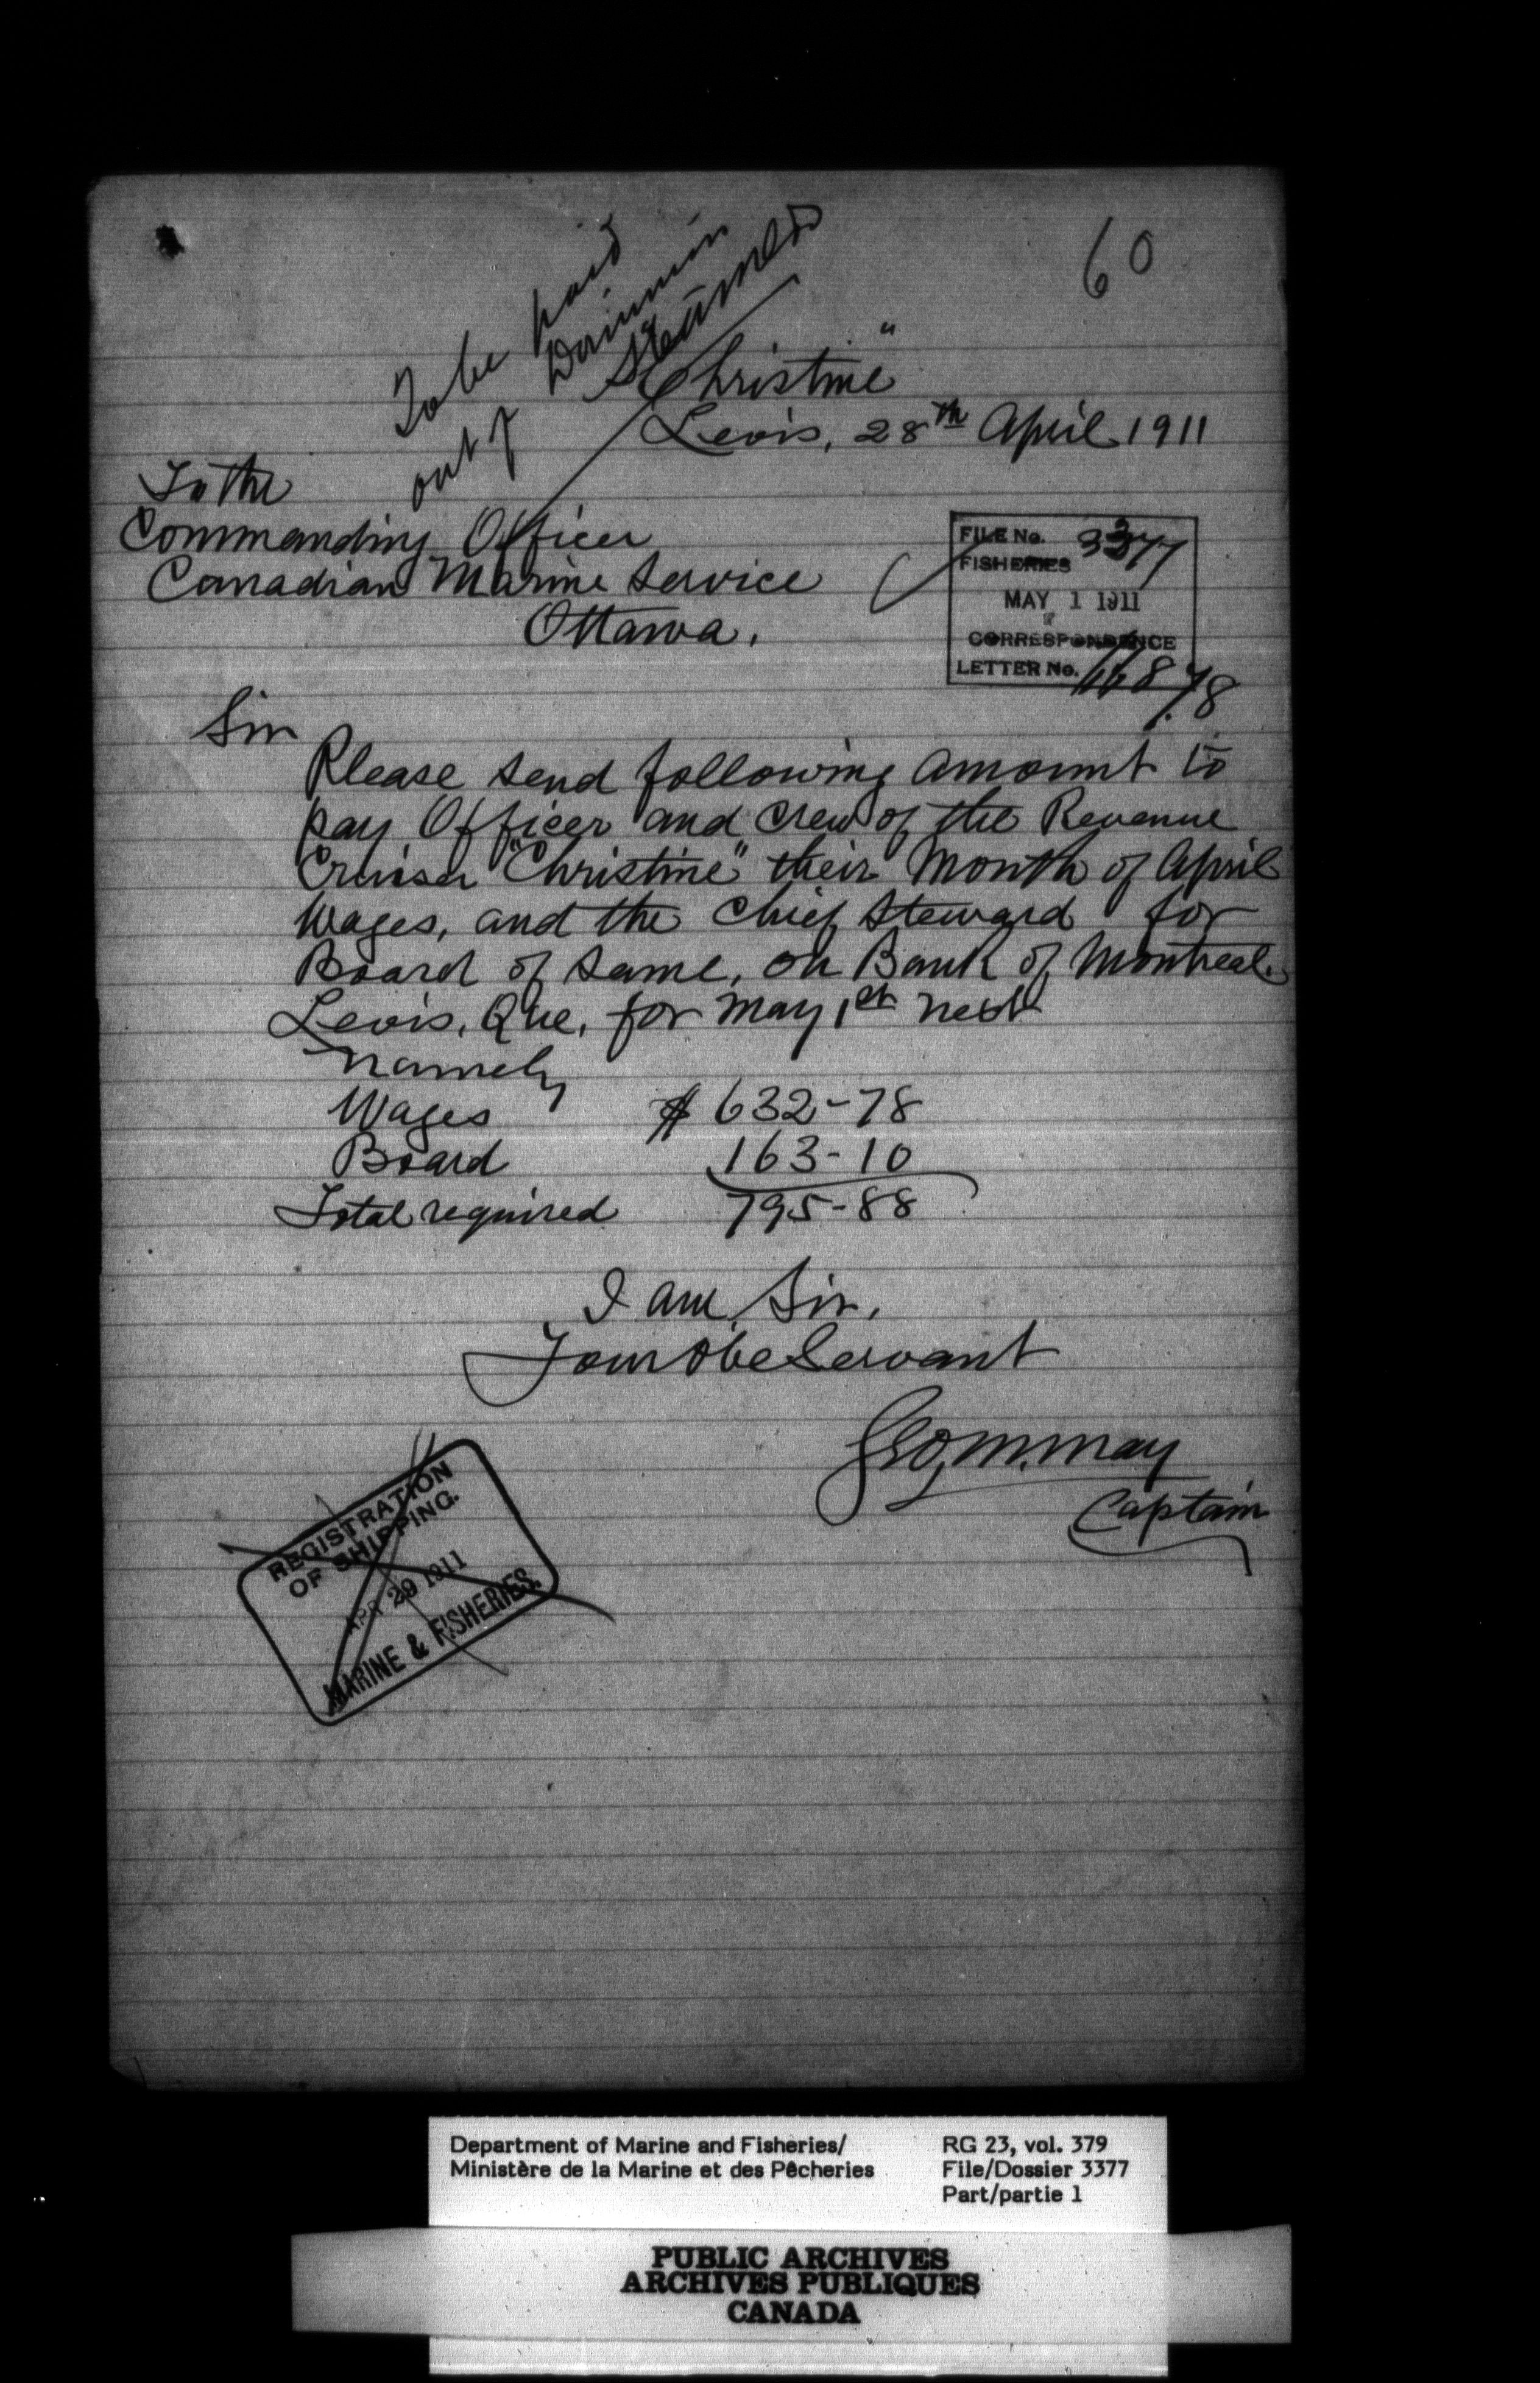 60
To be paid
out of Dominion
Steamers
"Christine"
Levis, 28th April 1911
To the
Commanding Officer
Canadian Marine Service
Ottawa.
FILE No. 3377
FISHERIES
MAY 1 1911
CORRESPONDENCE
LETTER No.
Sir
Please send following amount to
pay Officer and crew of the Revenue
Cruiser "Christine" their Month of April
Wages, and the Chief Steward for
Board of same, on Bank of Montreal.
Levis, Que, for May 1st next
namely
Wages $ 632-78
Board 163-10
Total required 795-88
I am, Sir,
Your Obe Servant
Geo, M. May
Captain
REGISTRATION
OF SHIPPING.
APR 29 1911
MARINE & FISHERIES.
Department of Marine and Fisheries/
Ministère de la Marine et des Pêcheries
RG 23, vol. 379
File/Dossier 3377
Part/partie 1
PUBLIC ARCHIVES
ARCHIVES PUBLIQUES
CANADA